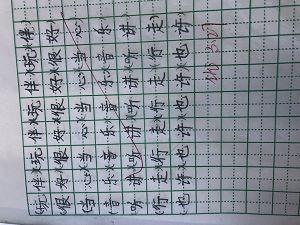 (玩伴)(玩伴)(玩伴)(玩伴)
(很好)(很好)(很好)(很好)
(当心)(当心)(当心)(当心)
(音乐)(音乐)(音乐)(音乐)
(听讲)(听讲)(听讲)(听讲)
(行走)(行走)(行走)(行走)
(也许)(也许)(也许)(也许)